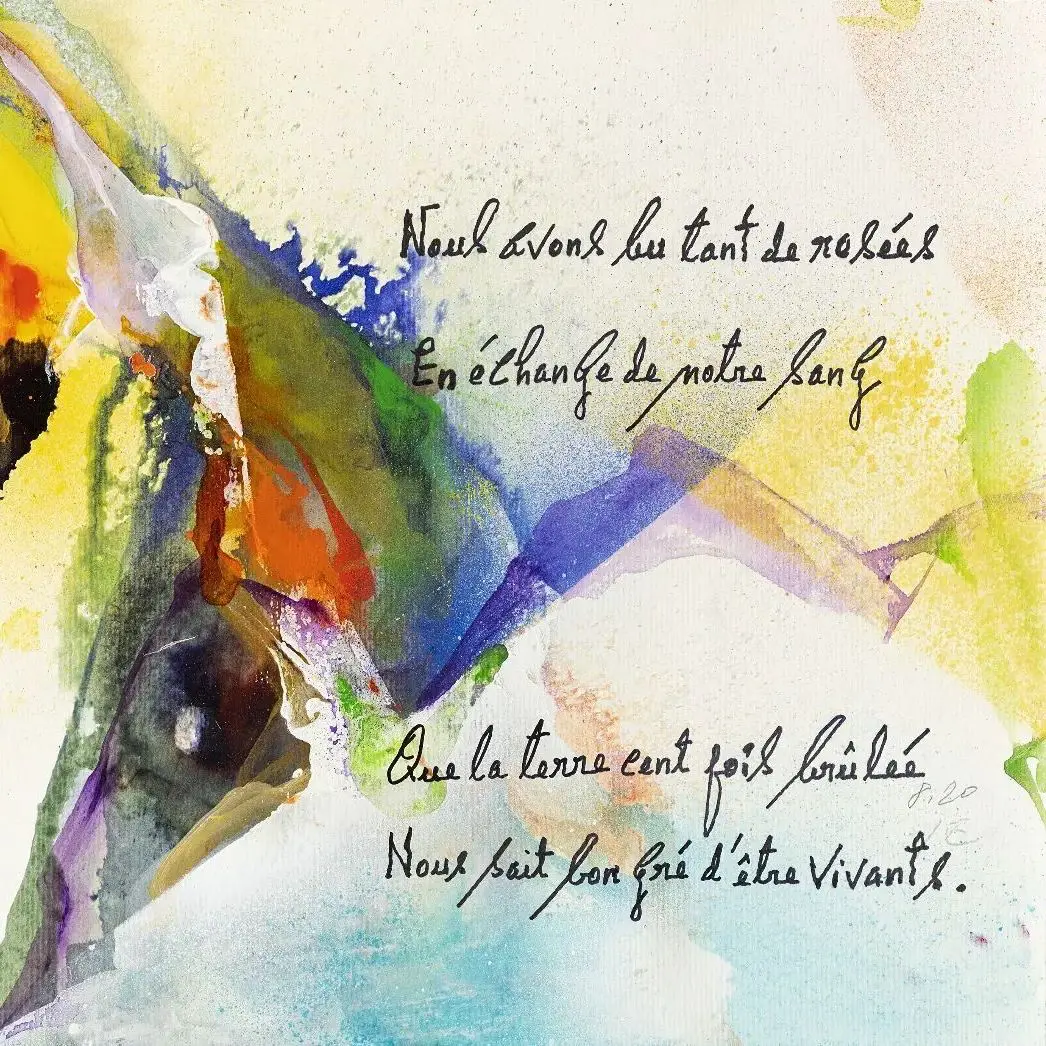 Nous avons bu tant de rosées
En échange de notre sang
Que la terre cent fois brûlée
8.20
Nous sait bon gré d'être vivants.